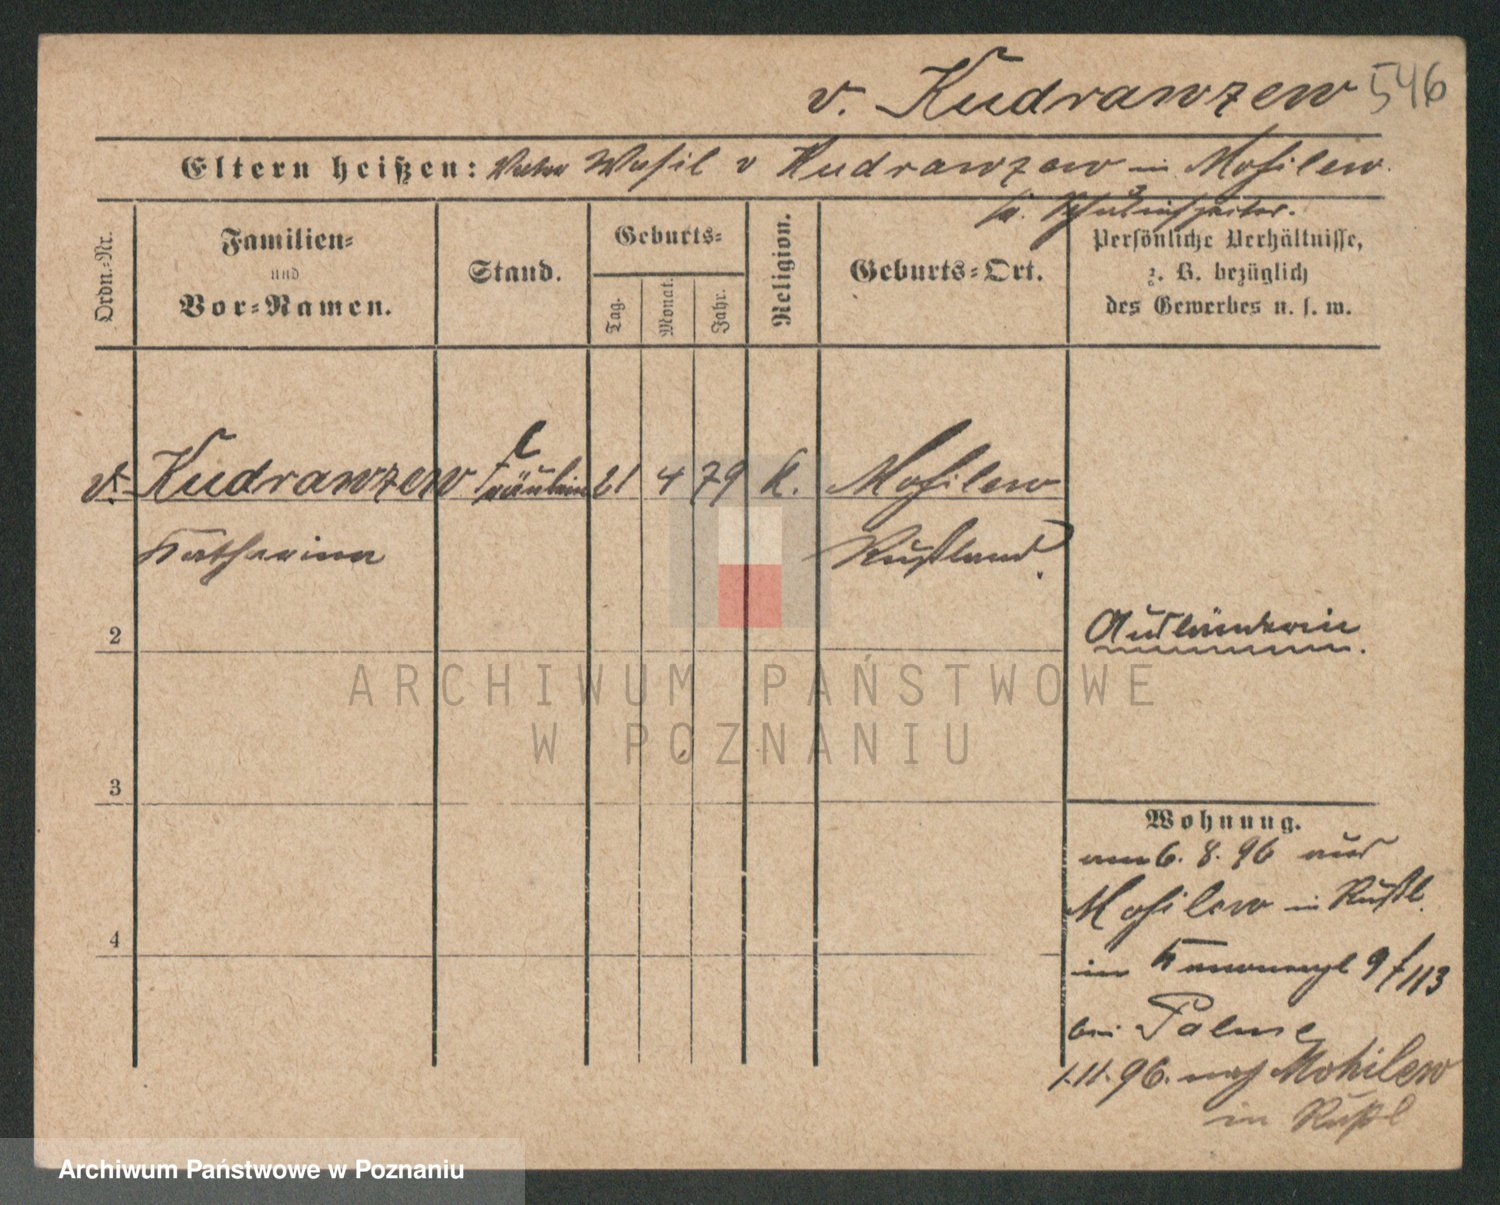 v. Kudrawzew 546
Eltern heißen: Vater Wasil v Kudrawzew in Mohilew.
Schulinspector.
Ordn.-Nr.
Familien-
und
Vor-Namen.
Stand.
Geburts-
Tag.
Monat.
Jahr.
Religion.
Geburts-Ort.
Persönliche Verhältnisse,
z. B. bezüglich
des Gewerbes u. s. w.
v. Kudrawzew Fräulein 21 4 79 K. Mohilew
Katharina Rußland.
2
Ausländerin.
ARCHIWUM PAŃSTWOWE
W POZNANIU
3
Wohnung.
am 6. 8. 96 aus
Mohilew in Rußl.
4
in 9/113
bei Palme
1.11.96. nach Mohilew
in Rußl
Archiwum Państwowe w Poznaniu